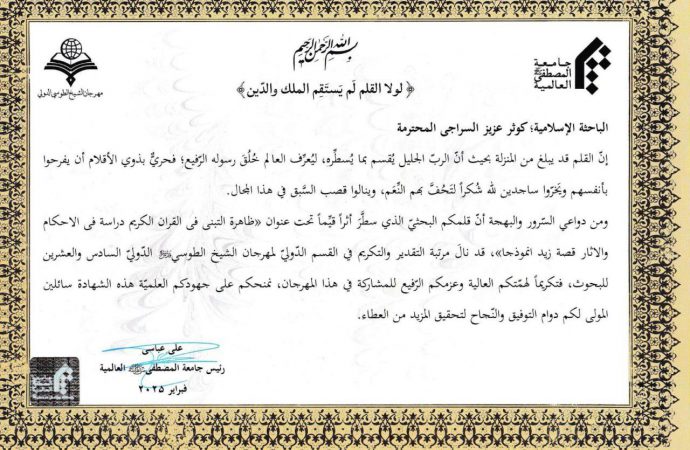 بسم الله الرحمن الرحيم
جامعة
المصطفى ﷺ
العالمية
مهرجان الشيخ الطوسي الدولي
﴿ لولا القلم لَم يَستَقِم الملك والدّين ﴾
الباحثة الإسلامية؛ كوثر عزيز السراجى المحترمة
إنّ القلم قد يبلغ من المنزلة بحيث أنّ الربّ الجليل يُقسم بما يُسطِّره، ليُعرِّف العالم خُلُقَ رسوله الرّفيع؛ فحريٌّ بذوي الأقلام أن يفرحوا
بأنفسهم ويَخرّوا ساجدين لله شُكراً لتَحُفَّ بهم النِّعَم، وينالوا قصب السَّبق في هذا المجال.
ومن دواعي السّرور والبهجة أنّ قلمكم البحثيّ الذي سطَّرَ أثراً قيِّماً تحت عنوان «ظاهرة التبنى فى القران الكريم دراسة فى الاحكام
والاثار قصة زيد انموذجا»، قد نالَ مرتبة التقدير والتكريم في القسم الدّوليّ لمهرجان الشيخ الطوسيﷺ الدّوليّ السادس والعشرين
للبحوث، فتكريماً لهمّتكم العالية وعزمكم الرّفيع للمشاركة في هذا المهرجان، نمنحكم على جهودكم العلميّة هذه الشهادة سائلين
المولى لكم دوام التوفيق والنّجاح لتحقيق المزيد من العطاء.
على عباسى
رئيس جامعة المصطفىﷺ العالمية
فبراير ۲۰۲۵